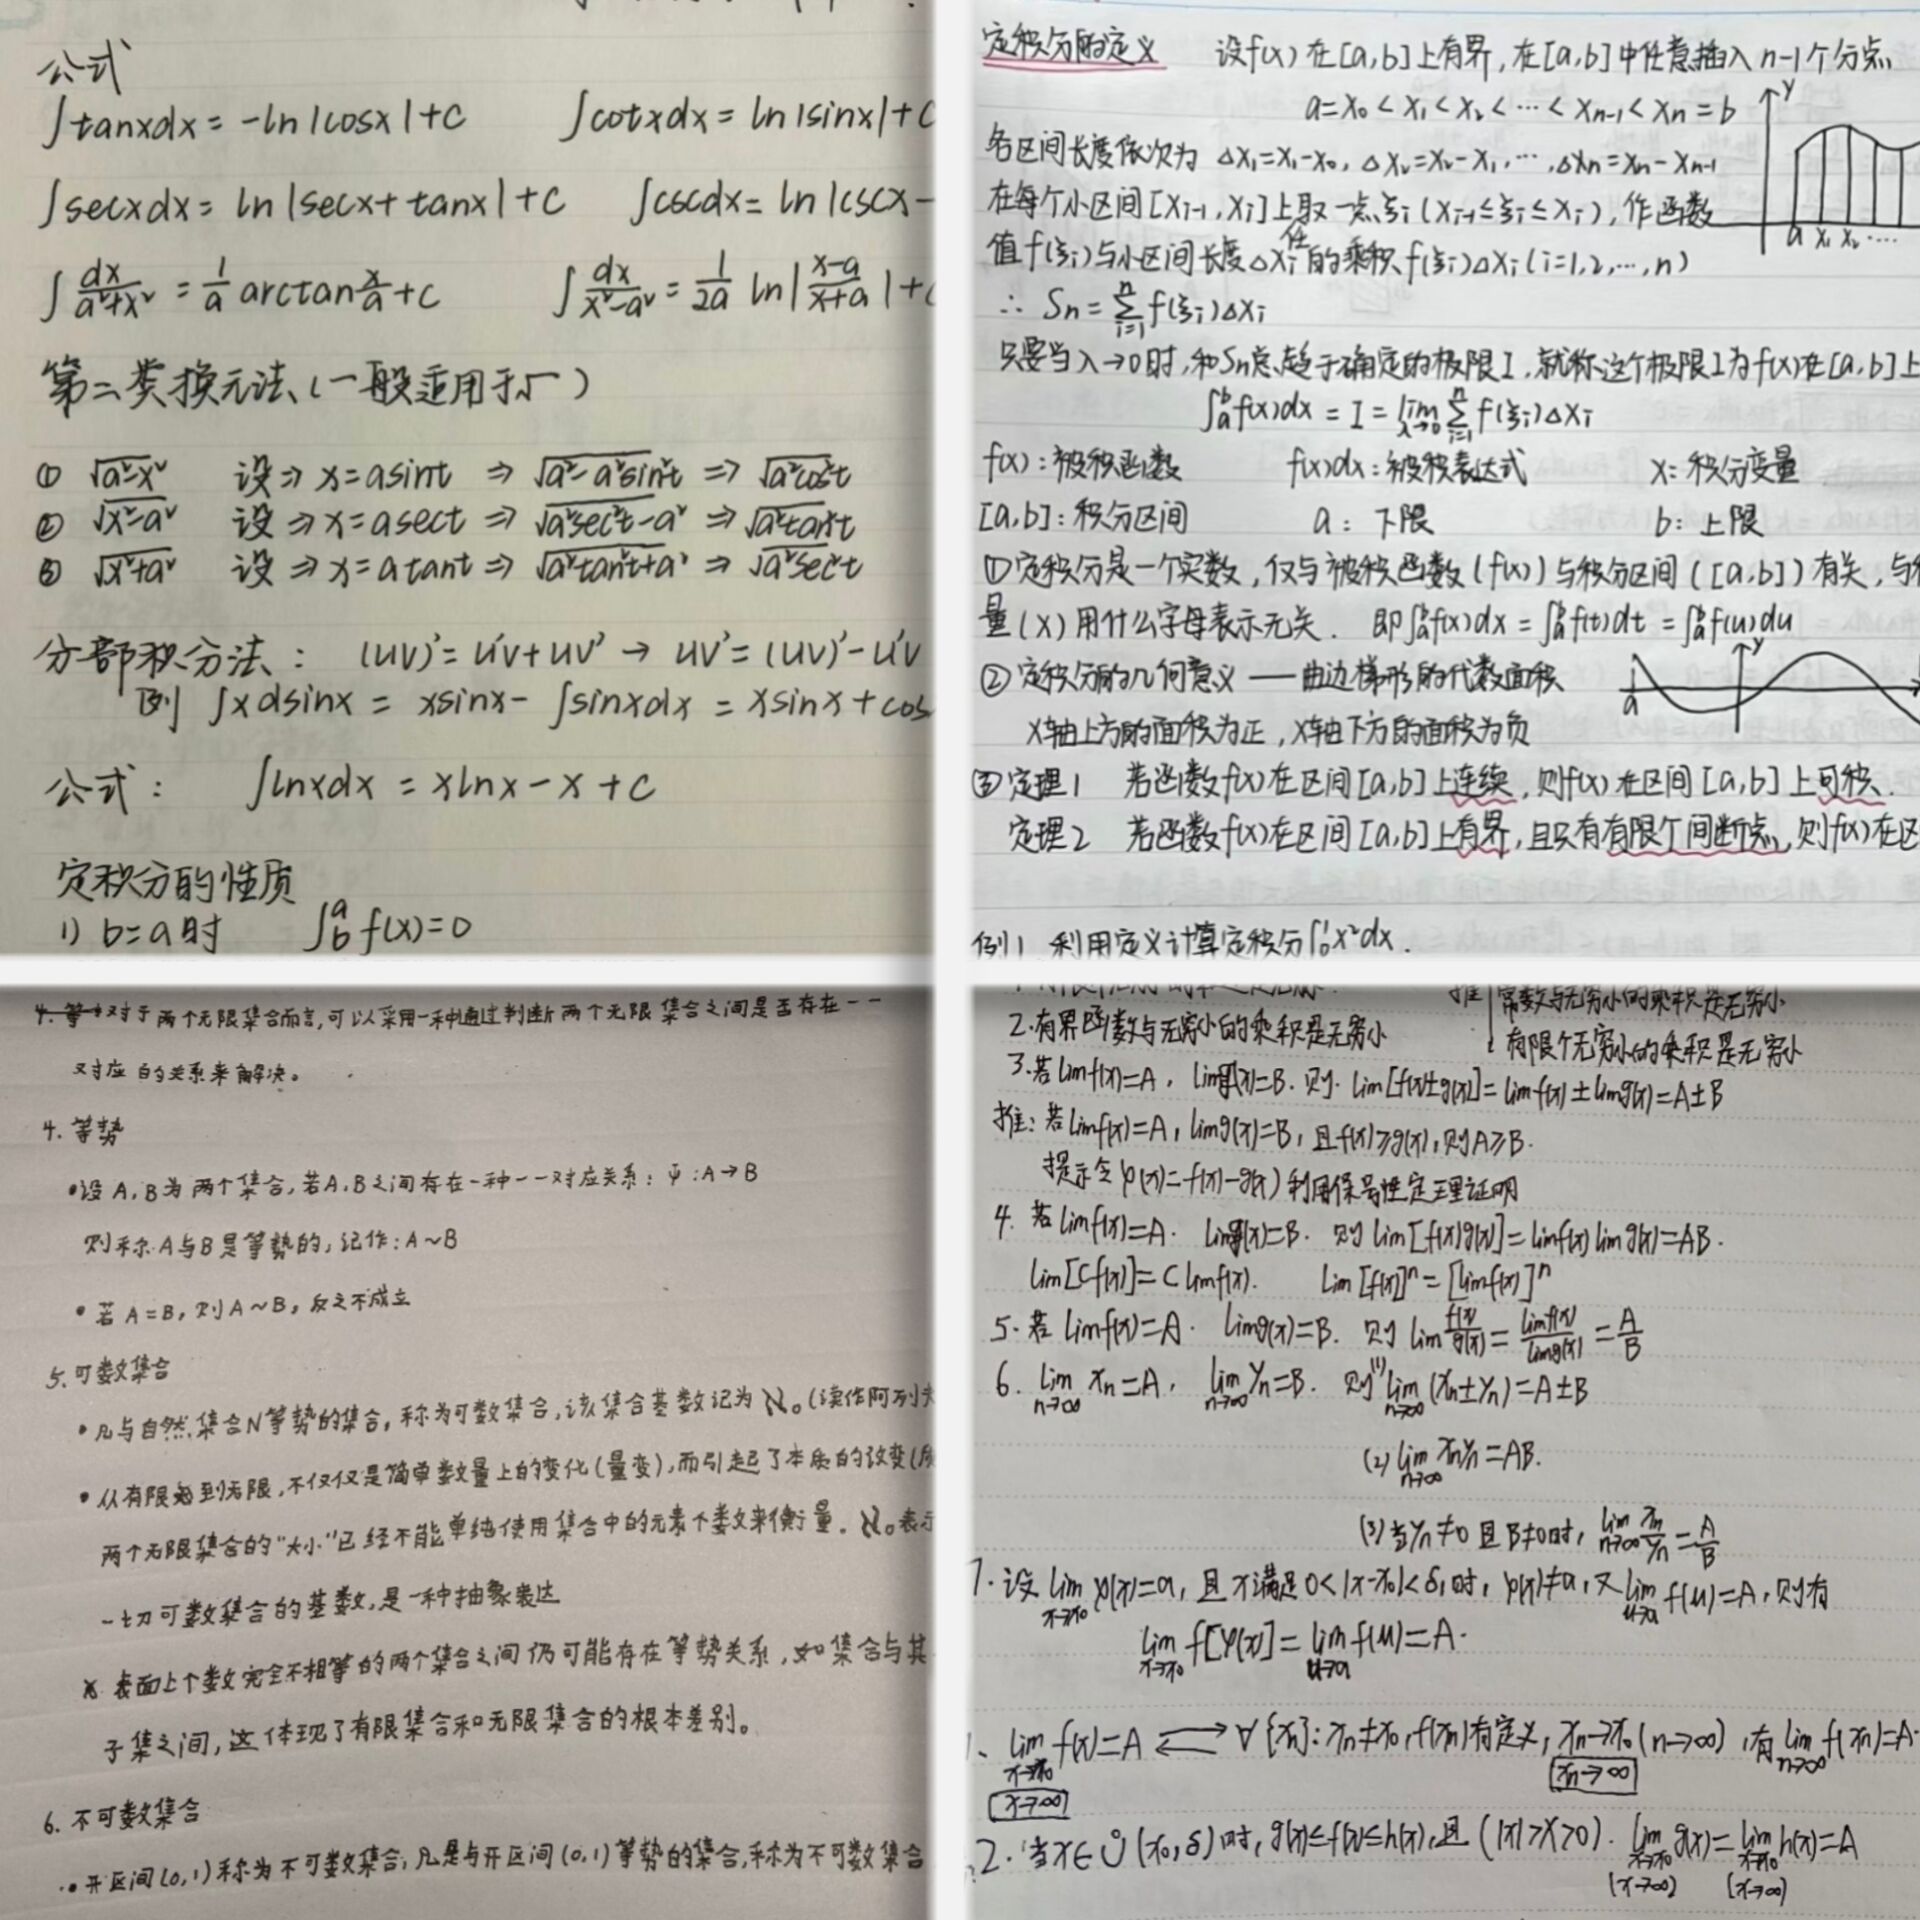 公式
∫tanxdx = -ln|cosx|+C ∫cotxdx = ln|sinx|+C
∫secxdx = ln|secx+tanx|+C ∫cscdx = ln|cscx-
∫dx/(a²+x²) = 1/a arctan x/a +C ∫dx/(x²-a²) = 1/2a ln|(x-a)/(x+a)|+C
第二类换元法(一般适用于√ )
① √(a²-x²) 设⇒ x=asint ⇒ √(a²-a²sin²t) ⇒ √(a²cos²t)
② √(x²-a²) 设⇒ x=asect ⇒ √(a²sec²t-a²) ⇒ √(a²tan²t)
③ √(x²+a²) 设⇒ x=atant ⇒ √(a²tan²t+a²) ⇒ √(a²sec²t)
分部积分法: (uv)'=u'v+uv' → uv'=(uv)'-u'v
例 ∫xdsinx = xsinx-∫sinxdx = xsinx+cos
公式: ∫lnxdx = xlnx-x+C
定积分的性质
1) b=a时 ∫_b^a f(x)=0
定积分的定义 设f(x)在[a,b]上有界,在[a,b]中任意插入n-1个分点
a=x₀<x₁<x₂<…<xn-1<xn=b
y
各区间长度依次为 Δx₁=x₁-x₀, Δx₂=x₂-x₁,…,Δxn=xn-xn-1
在每个小区间[xi-1,xi]上取一点ξi(xi-1≤ξi≤xi),作函数
任
a x₁ x₂ ....
值f(ξi)与小区间长度Δxi的乘积f(ξi)Δxi(i=1,2,…,n)
∴ Sn=∑_{i=1}^{n} f(ξi)Δxi
只要当λ→0时,和Sn总趋于确定的极限I,就称这个极限I为f(x)在[a,b]上
∫_a^b f(x)dx = I = lim_{λ→0} ∑_{i=1}^{n} f(ξi)Δxi
f(x):被积函数 f(x)dx:被积表达式 x:积分变量
[a,b]:积分区间 a:下限 b:上限
①定积分是一个实数,仅与被积函数(f(x))与积分区间([a,b])有关,与积
量(x)用什么字母表示无关. 即∫_a^b f(x)dx=∫_a^b f(t)dt=∫_a^b f(u)du
②定积分的几何意义——曲边梯形的代数面积
y
a
x轴上方的面积为正,x轴下方的面积为负
③定理1 若函数f(x)在区间[a,b]上连续,则f(x)在区间[a,b]上可积.
定理2 若函数f(x)在区间[a,b]上有界,且只有有限个间断点,则f(x)在区
例1 利用定义计算定积分∫_0^1 x²dx.
对于两个无限集合而言,可以采用一种通过判断两个无限集合之间是否存在一一
对应的关系来解决。
4. 等势
•设A,B为两个集合,若A,B之间存在一种一一对应关系:ψ:A→B
则称A与B是等势的,记作:A~B
•若A=B,则A~B,反之不成立
5.可数集合
•凡与自然集合N等势的集合,称为可数集合,该集合基数记为ℵ₀(读作阿列夫
•从有限到无限,不仅仅是简单数量上的变化(量变),而引起了本质的改变(质
两个无限集合的"大小"已经不能单纯使用集合中的元素个数来衡量。ℵ₀表示
一切可数集合的基数,是一种抽象表达
※表面上个数完全不相等的两个集合之间仍可能存在等势关系,如集合与其
子集之间,这体现了有限集合和无限集合的根本差别。
6. 不可数集合
•开区间(0,1)称为不可数集合,凡是与开区间(0,1)等势的集合,称为不可数集合
推 常数与无穷小的乘积是无穷小
2.有界函数与无穷小的乘积是无穷小
有限个无穷小的乘积是无穷小
3.若limf(x)=A, limg(x)=B. 则 lim[f(x)±g(x)]=limf(x)±limg(x)=A±B
推:若limf(x)=A, limg(x)=B,且f(x)≥g(x),则A≥B.
提示令φ(x)=f(x)-g(x)利用保号性定理证明
4. 若limf(x)=A. limg(x)=B. 则 lim[f(x)g(x)]=limf(x)limg(x)=AB.
lim[Cf(x)]=Climf(x). lim[f(x)]ⁿ=[limf(x)]ⁿ
5.若limf(x)=A. limg(x)=B. 则 lim f(x)/g(x)=limf(x)/limg(x)=A/B
6. lim_{n→∞} xn=A, lim_{n→∞} yn=B. 则(1) lim_{n→∞}(xn±yn)=A±B
(2) lim_{n→∞} xnyn=AB.
(3)当yn≠0且B≠0时, lim_{n→∞} xn/yn=A/B
7.设 lim_{x→x₀} φ(x)=a,且x满足0<|x-x₀|<δ₁时, φ(x)≠a,又 lim_{u→a} f(u)=A,则有
lim_{x→x₀} f[φ(x)]=lim_{u→a} f(u)=A.
1、lim_{x→x₀} f(x)=A ⇌ ∀{xn}:xn≠x₀,f(xn)有定义,xn→x₀(n→∞),有lim_{n→∞} f(xn)=A.
x→∞ xn→∞
2.当x∈Ů(x₀,δ)时,g(x)≤f(x)≤h(x),且(|x|>X>0). lim_{x→x₀} g(x)=lim_{x→x₀} h(x)=A
(x→∞) (x→∞)